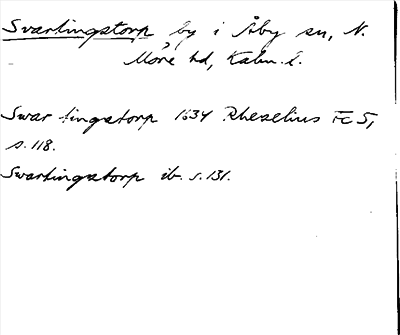 Svartingstorp by i Åby sn, N.
Möre hd, Kalm. l.
Swartingstorp 1634 Rhezelius Fc 5,
s. 118.
Swartingstorp ib. s. 131.